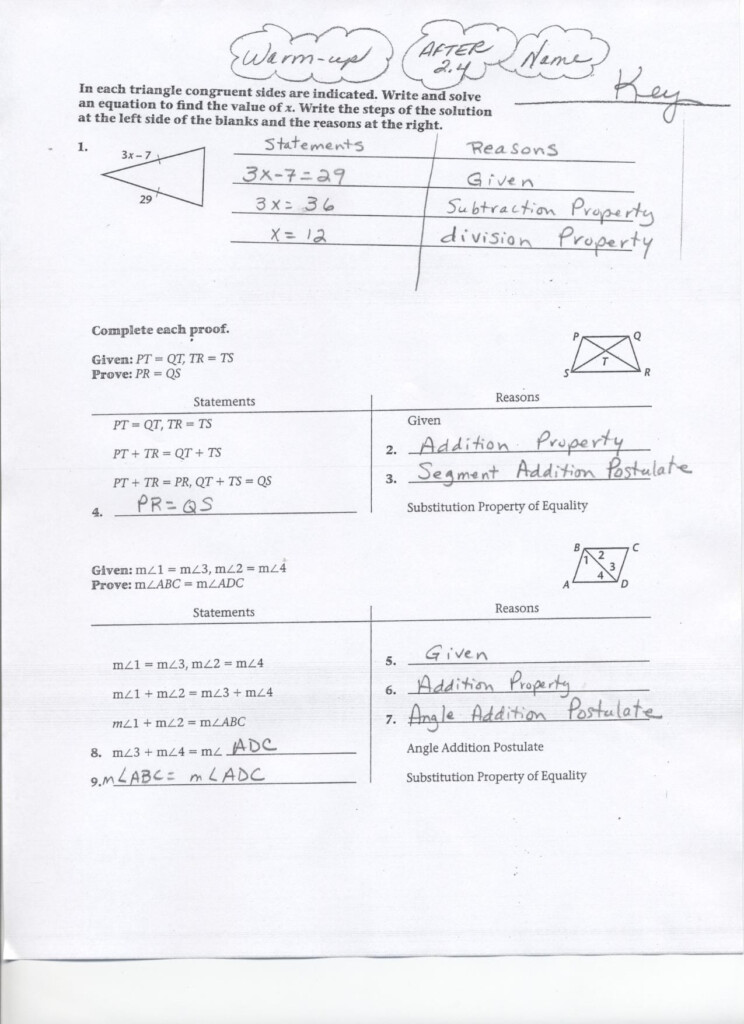 Warm-up AFTER 2.4 Name
Key
In each triangle congruent sides are indicated. Write and solve
an equation to find the value of x. Write the steps of the solution
at the left side of the blanks and the reasons at the right.
1.
3x – 7
29
Statements Reasons
3x-7=29 Given
3x= 36 Subtraction Property
x= 12 division Property
Complete each proof.
Given: PT = QT, TR = TS
Prove: PR = QS
P Q
T
S R
Statements Reasons
PT = QT, TR = TS Given
PT + TR = QT + TS 2. Addition Property
PT + TR = PR, QT + TS = QS 3. Segment Addition Postulate
4. PR= QS Substitution Property of Equality
Given: m∠1 = m∠3, m∠2 = m∠4
Prove: m∠ABC = m∠ADC
B C
1 2
3
4
A D
Statements Reasons
m∠1 = m∠3, m∠2 = m∠4 5. Given
m∠1 + m∠2 = m∠3 + m∠4 6. Addition Property
m∠1 + m∠2 = m∠ABC 7. Angle Addition Postulate
8. m∠3 + m∠4 = m∠ ADC Angle Addition Postulate
9. m∠ABC= m∠ADC Substitution Property of Equality